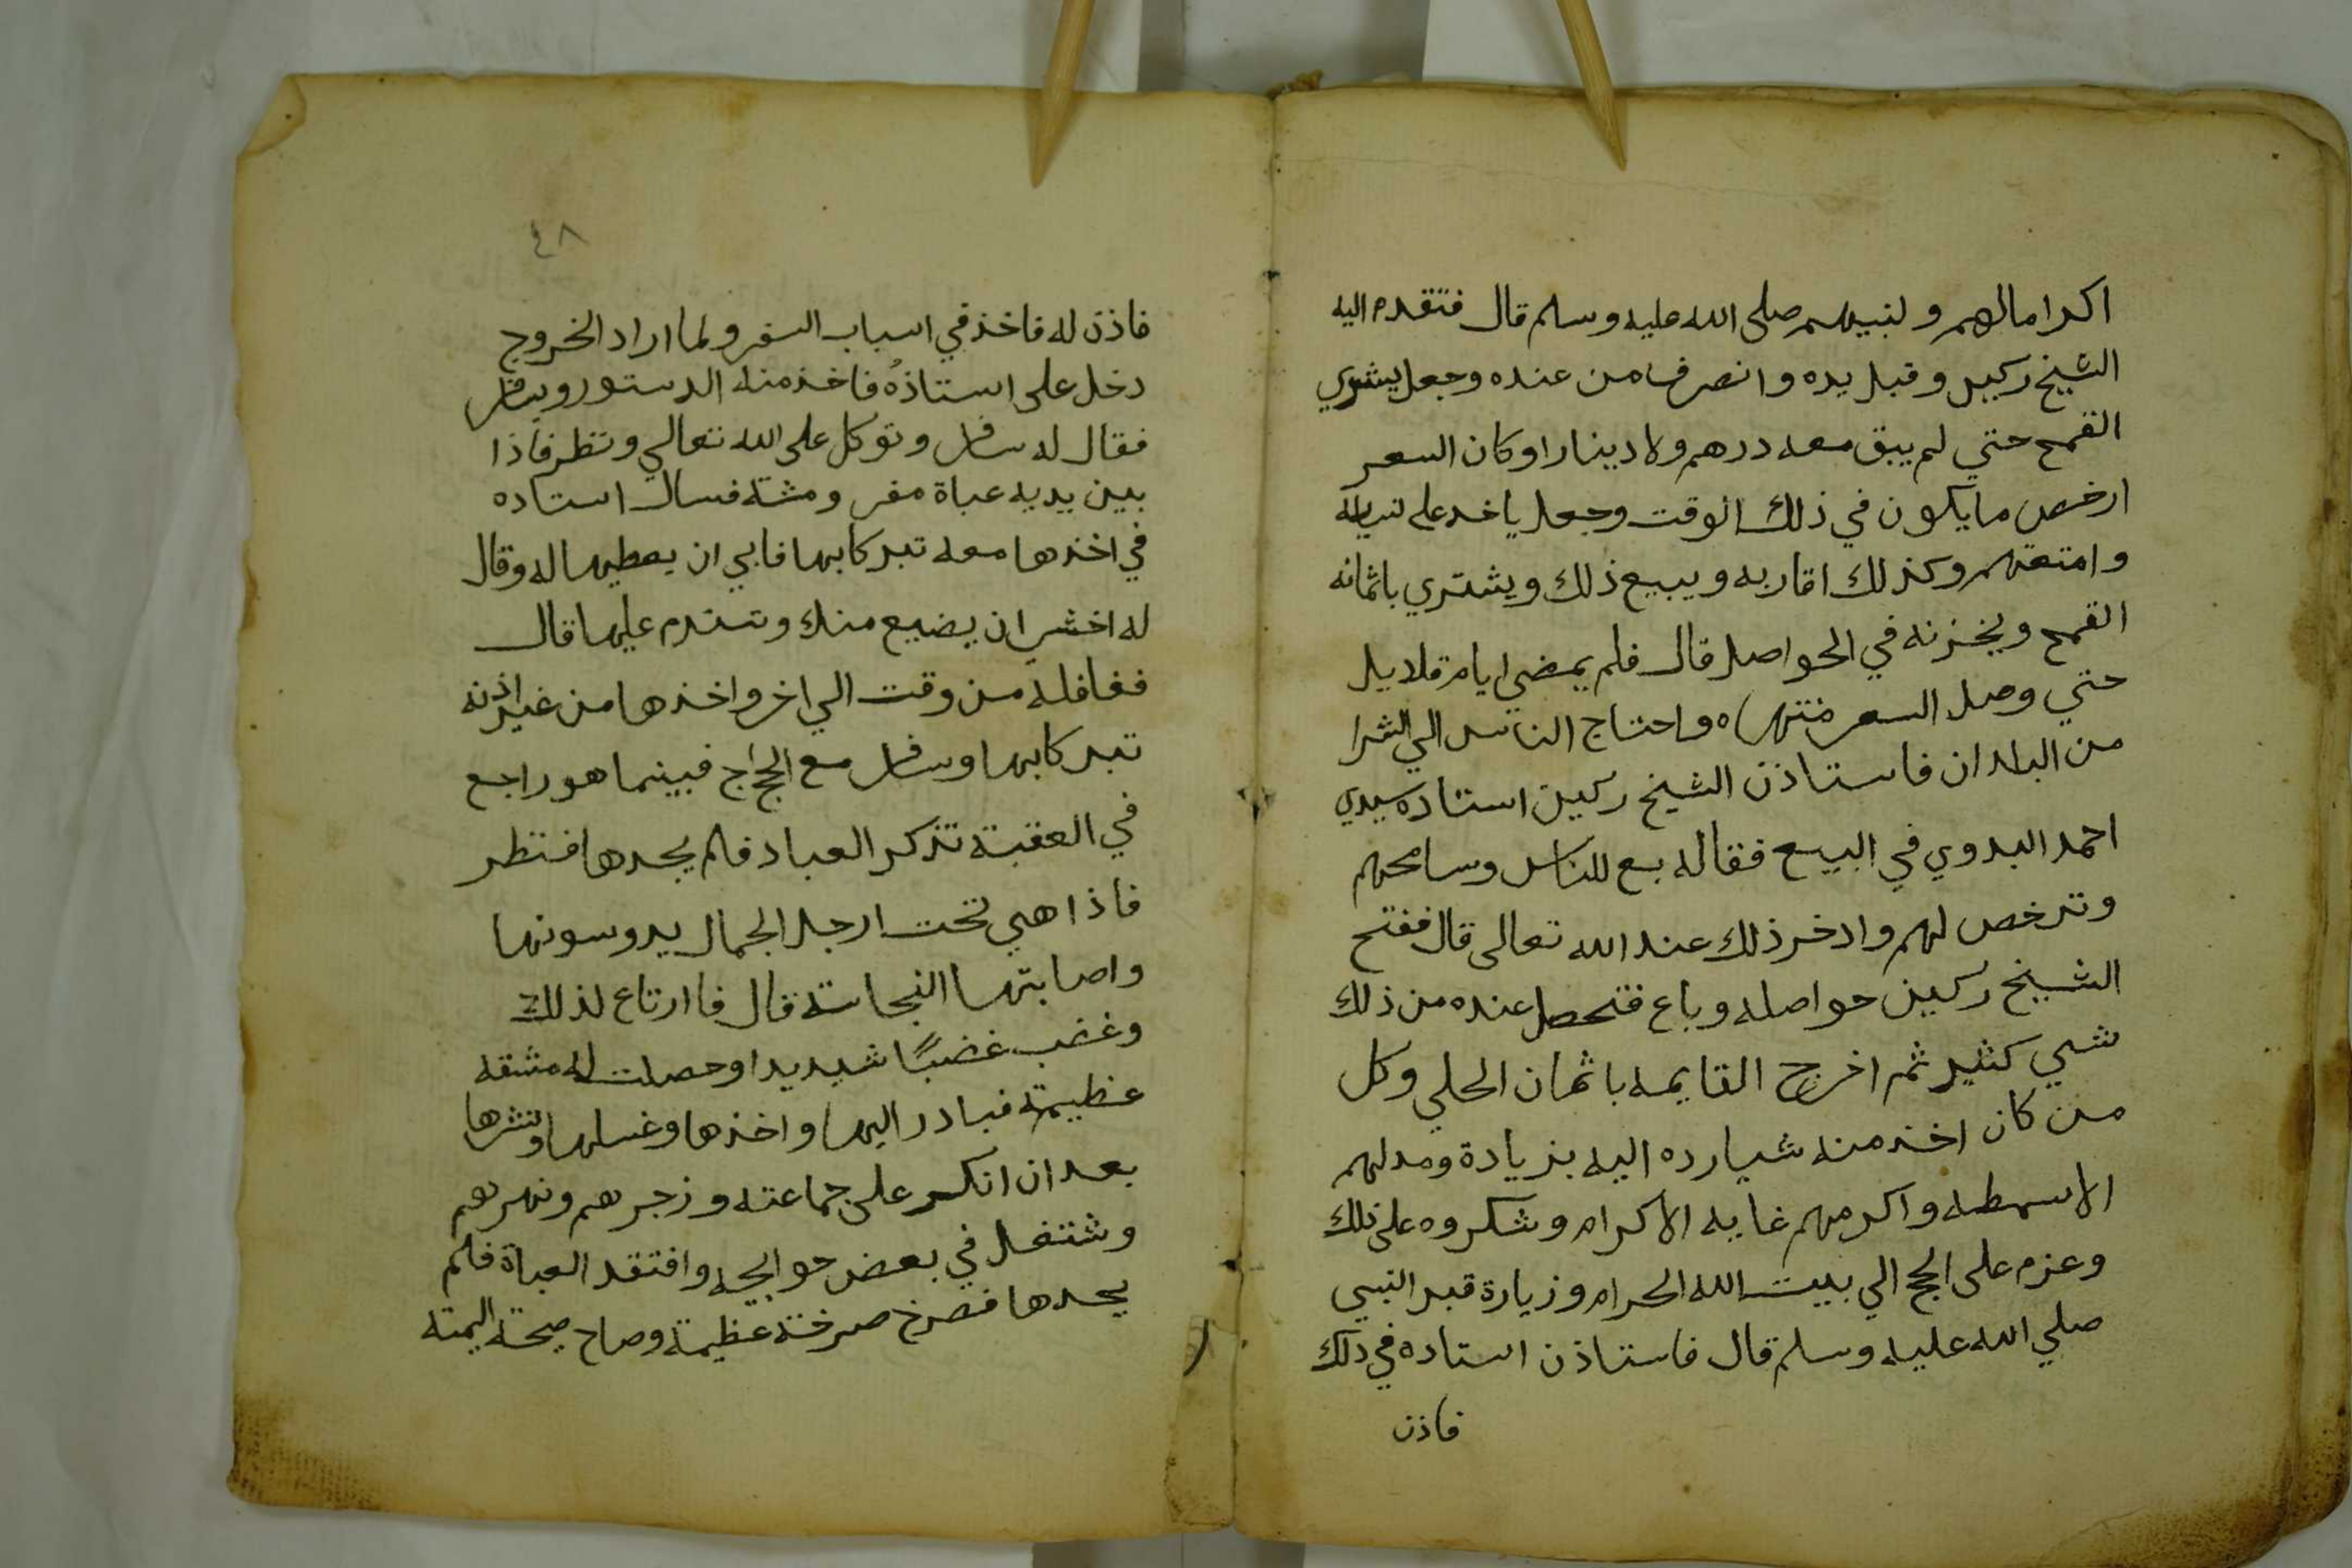 اكراما لهم ولنبيهم صلى الله عليه وسلم قال فتقدم اليه
الشيخ ركين وقبل يده وانصرف من عنده وجعل يشتري
القمح حتي لم يبق معه درهم ولا دينارا وكان السعر
ارخص ما يكون في ذلك الوقت وجعل ياخد على
وامتعتهم وكذلك اقاربه ويبيع ذلك ويشتري باثمانه
القمح ويخزنه في الحواصل قال فلم يمضي ايام قلايل
حتي وصل السعر منتهاه واحتاج الناس الي الشرا
من البلدان فاستاذن الشيخ ركين استاده سيدي
احمد البدوي في البيع فقال له بع للناس وسامحهم
وترخص لهم وادخر ذلك عند الله تعالى قال ففتح
الشيخ ركين حواصله وباع فتحصل عنده من ذلك
شي كثير ثم اخرج القايمه باثمان الحلي وكل
من كان اخذ منه شيا رده اليه بزيادة ومد لهم
الاسمطه واكرمهم غايه الاكرام وشكروه على ذلك
وعزم على الحج الي بيت الله الحرام وزيارة قبر النبي
صلي الله عليه وسلم قال فاستاذن استاده في ذلك
فاذن
٤٨
فاذن له فاخذ في اسباب السفر ولما اراد الخروج
دخل على استاذهُ فاخذ منه الدستور ويسافر
فقال له سافر وتوكل على الله تعالي ونظر فاذا
بين يديه عباة مفر ومشة فسال استاده
في اخذها معه تبركا بها فابي ان يعطيها له وقال
له اخشي ان يضيع منك وتندم عليها قال
فغافله من وقت الي اخر واخذها من غير اذنه
تبركا بها وسافر مع الحجاج فبينما هو راجع
في العقبة تذكر العباد فلم يجدها فنظر
فاذا هي تحت ارجل الجمال يدوسونها
واصابتها النجاسة قال فا ارتاع لذلك
وغضب غضبًا شديدا وحصلت له مشقه
عظيمة فبادر اليها واخذها وغسلها ونشرها
بعد ان انكر على جماعته وزجرهم ونهرهم
وشتغل في بعض حوايجه وافتقد العباة فلم
يجدها فصرخ صرخة عظيمة وصاح صيحة اليمة